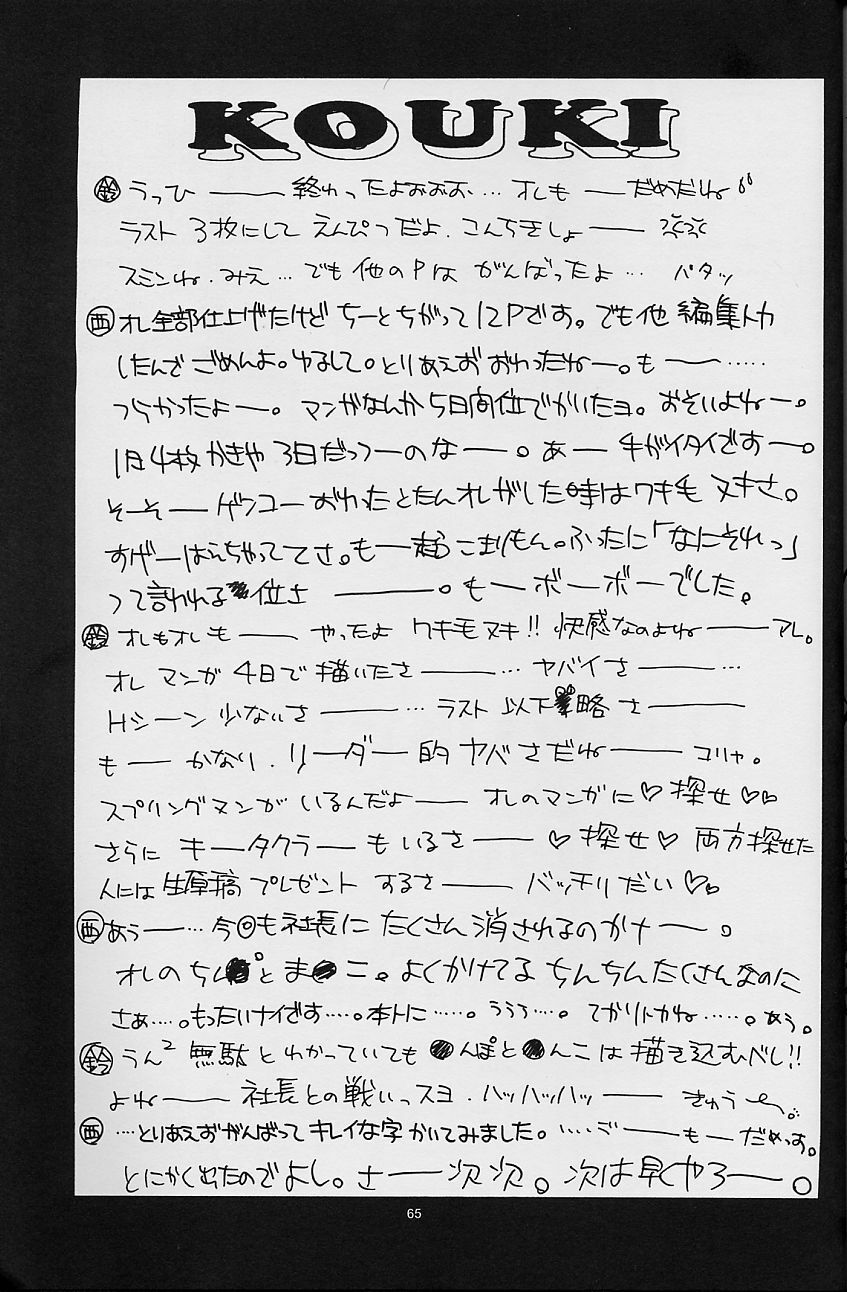 KOUKI
鈴 うっひ――終わったよおおお…オレも―だめだね
ラスト3枚にして えんぴつだよ.こんちきしょ――
スミンね.みえ…でも他のPは がんばったよ… パタッ
西 オレ全部仕上げたけど ちーとちがって12Pです。でも他 編集トカ
したんで ごめんよ。ゆるして。とりあえお おわったねー。も――……
つらかったよー。マンガなんか5日間位でかいたヨ。おそいよねー。
1月4枚かきや 3日だっつーのなー。あー 手がイタイですー。
そーそー ゲンコー おわったとたんオレがした時はワキ毛 ヌキさ。
すげーはえちゃっててさ。もー超こまりもん。ふったに「なにそれっ」
って言われる位さ ――。もーボーボーでした。
鈴 オレもオレも―― やったよ ワキモヌキ!! 快感なのよね――アレ。
オレ マンガ 4日で描いたさ――… ヤバイさ――…
Hシーン 少ないさ――… ラスト 以下略さ――
も―― かなり.リーダー的ヤバさだね―― コリャ。
スプリングマンが いるんだよ―― オレのマンガに♡探せ♡♡
さらに キータクラーもいるさ――♡探せ♡ 両方探せた
人には生原稿プレゼント するさ―― バッチリだい♡♡
西 あぅー…今◎も社長に たくさん消されるのかナー。
オレの ち●と ま●こ。よくかけてる ちんちんたくさんなのに
さぁ….もったいナイです….本トに……。ううう…。てかりトカね……。あう。
鈴 うん² 無駄とわかっていても ●んぽと●んこは描き込むべし!!
よね―― 社長との戦いっスヨ.ハッハッハッ―― きゅう〜
西 …とりあえおがんばって キレイな字 かいてみました。…ご――も―だめっす。
とにかく出たのでよし。さ――次次。次は早くヤろ――。
65